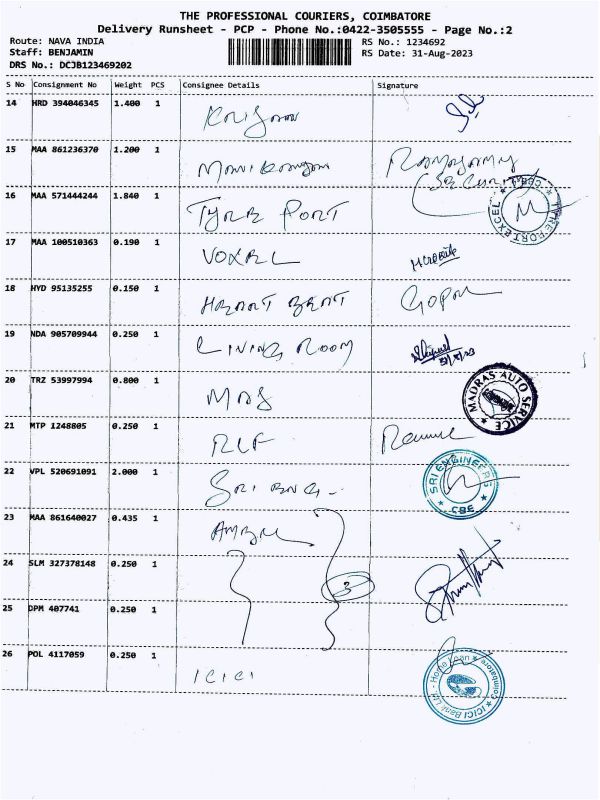 THE PROFESSIONAL COURIERS, COIMBATORE
Delivery Runsheet - PCP - Phone No.:0422-3505555 - Page No.:2
Route: NAVA INDIA RS No.: 1234692
Staff: BENJAMIN RS Date: 31-Aug-2023
DRS No.: DCJB123469202
S No Consignment No Weight PCS Consignee Details Signature
14 HRD 394046345 1.400 1
15 MAA 861236370 1.200 1
16 MAA 571444244 1.840 1 TYRE PORT
TYRE PORT EXCEL
17 MAA 100510363 0.190 1 VOXEL
18 HYD 95135255 0.150 1 HEART BEAT GOPAL
19 NDA 905709944 0.250 1 LIVING ROOM
31/8/23
20 TRZ 53997994 0.800 1 MAS
MADRAS AUTO SERVICE
21 MTP 1248805 0.250 1
22 VPL 520691091 2.000 1 SRI ENG
SRI ENGINEERS CBE
23 MAA 861640027 0.435 1
24 SLM 327378148 0.250 1
3
25 DPM 407741 0.250 1
26 POL 4117059 0.250 1 ICICI
ICICI Bank Ltd - Home Loan Coimbatore